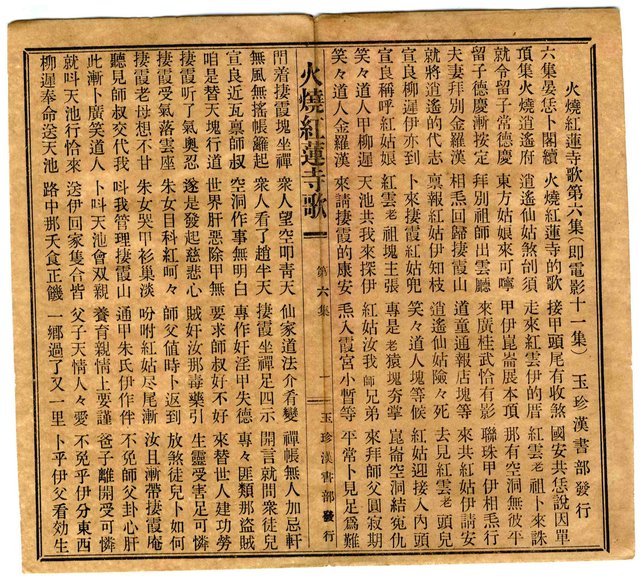 火燒紅蓮寺歌第六集(即電影十一集) 玉珍漢書部發行
六集晏恁卜閣續 火燒紅蓮寺的歌 接甲頭尾有收煞 國安共恁說因單
頂集火燒逍遙府 逍遙仙姑煞剖須 走來紅雲伊的厝 紅雲老祖卜來誅
就令留子常德慶 東方姑娘來可嚀 甲伊崑崙展本頂 那有空洞無彼平
留子德慶漸按定 拜別祖師出雲聽 來廣桂武恰有影 聯珠甲伊相𤆬行
夫妻拜別金羅漢 相𤆬回歸棲霞山 道童通報店塊等 來共紅姑伊請安
就將逍遙的代志 禀報紅姑伊知枝 逍遙仙姑險々死 去見紅雲老頭兒
宣良柳遲伊亦到 卜來棲霞紅姑兜 笑々道人塊等候 紅姑迎接入內頭
宣良稱呼紅姑娘 紅雲老祖塊主張 專是老猿塊夯掌 崑崙空洞結冤仇
笑々道人甲柳遲 天池共我來探伊 紅姑汝我師兄弟 來拜師父圓寂期
笑々道人金羅漢 來請棲霞的康安 𤆬入霞宮小暫等 平常卜見足爲難
火燒紅蓮寺歌 第六集 一 玉珍漢書部發行
閂着棲霞塊坐禪 衆人望空叩靑天 仙家道法介看變 禪帳無人加忌軒
無風無搖帳簾起 衆人看了趙半天 棲霞坐禪足四示 開言就問衆徒兒
宣良近瓦禀師叔 空洞作事無明白 專作奸淫甲失德 專々匪類那盜賊
咱是替天塊行道 世界肝惡除甲無 要求師叔好不好 來替世人建功勞
棲霞听了氣奧忍 遂是發起慈悲心 賊奸汝那毒藥引 生靈受害足可憐
棲霞受氣落雲座 朱女目科紅呵々 師父值時卜返到 放煞徒兒卜如何
棲霞老母想不甘 朱女哭甲衫巢淡 吩咐紅姑尽尾漸 汝且漸帶棲霞庵
聽見師叔交代我 呌我管理棲霞山 通甲朱氏伊作伴 不免師父卦心肝
此漸卜廣笑道人 卜呌天池會双親 養育親情上要謹 爸子離開受可憐
就呌天池行恰來 送伊回家集合皆 父子天情人々愛 不免乎伊分東西
柳遲奉命送天池 路中那夭食正饑 一鄉過了又一里 卜乎伊父看効生